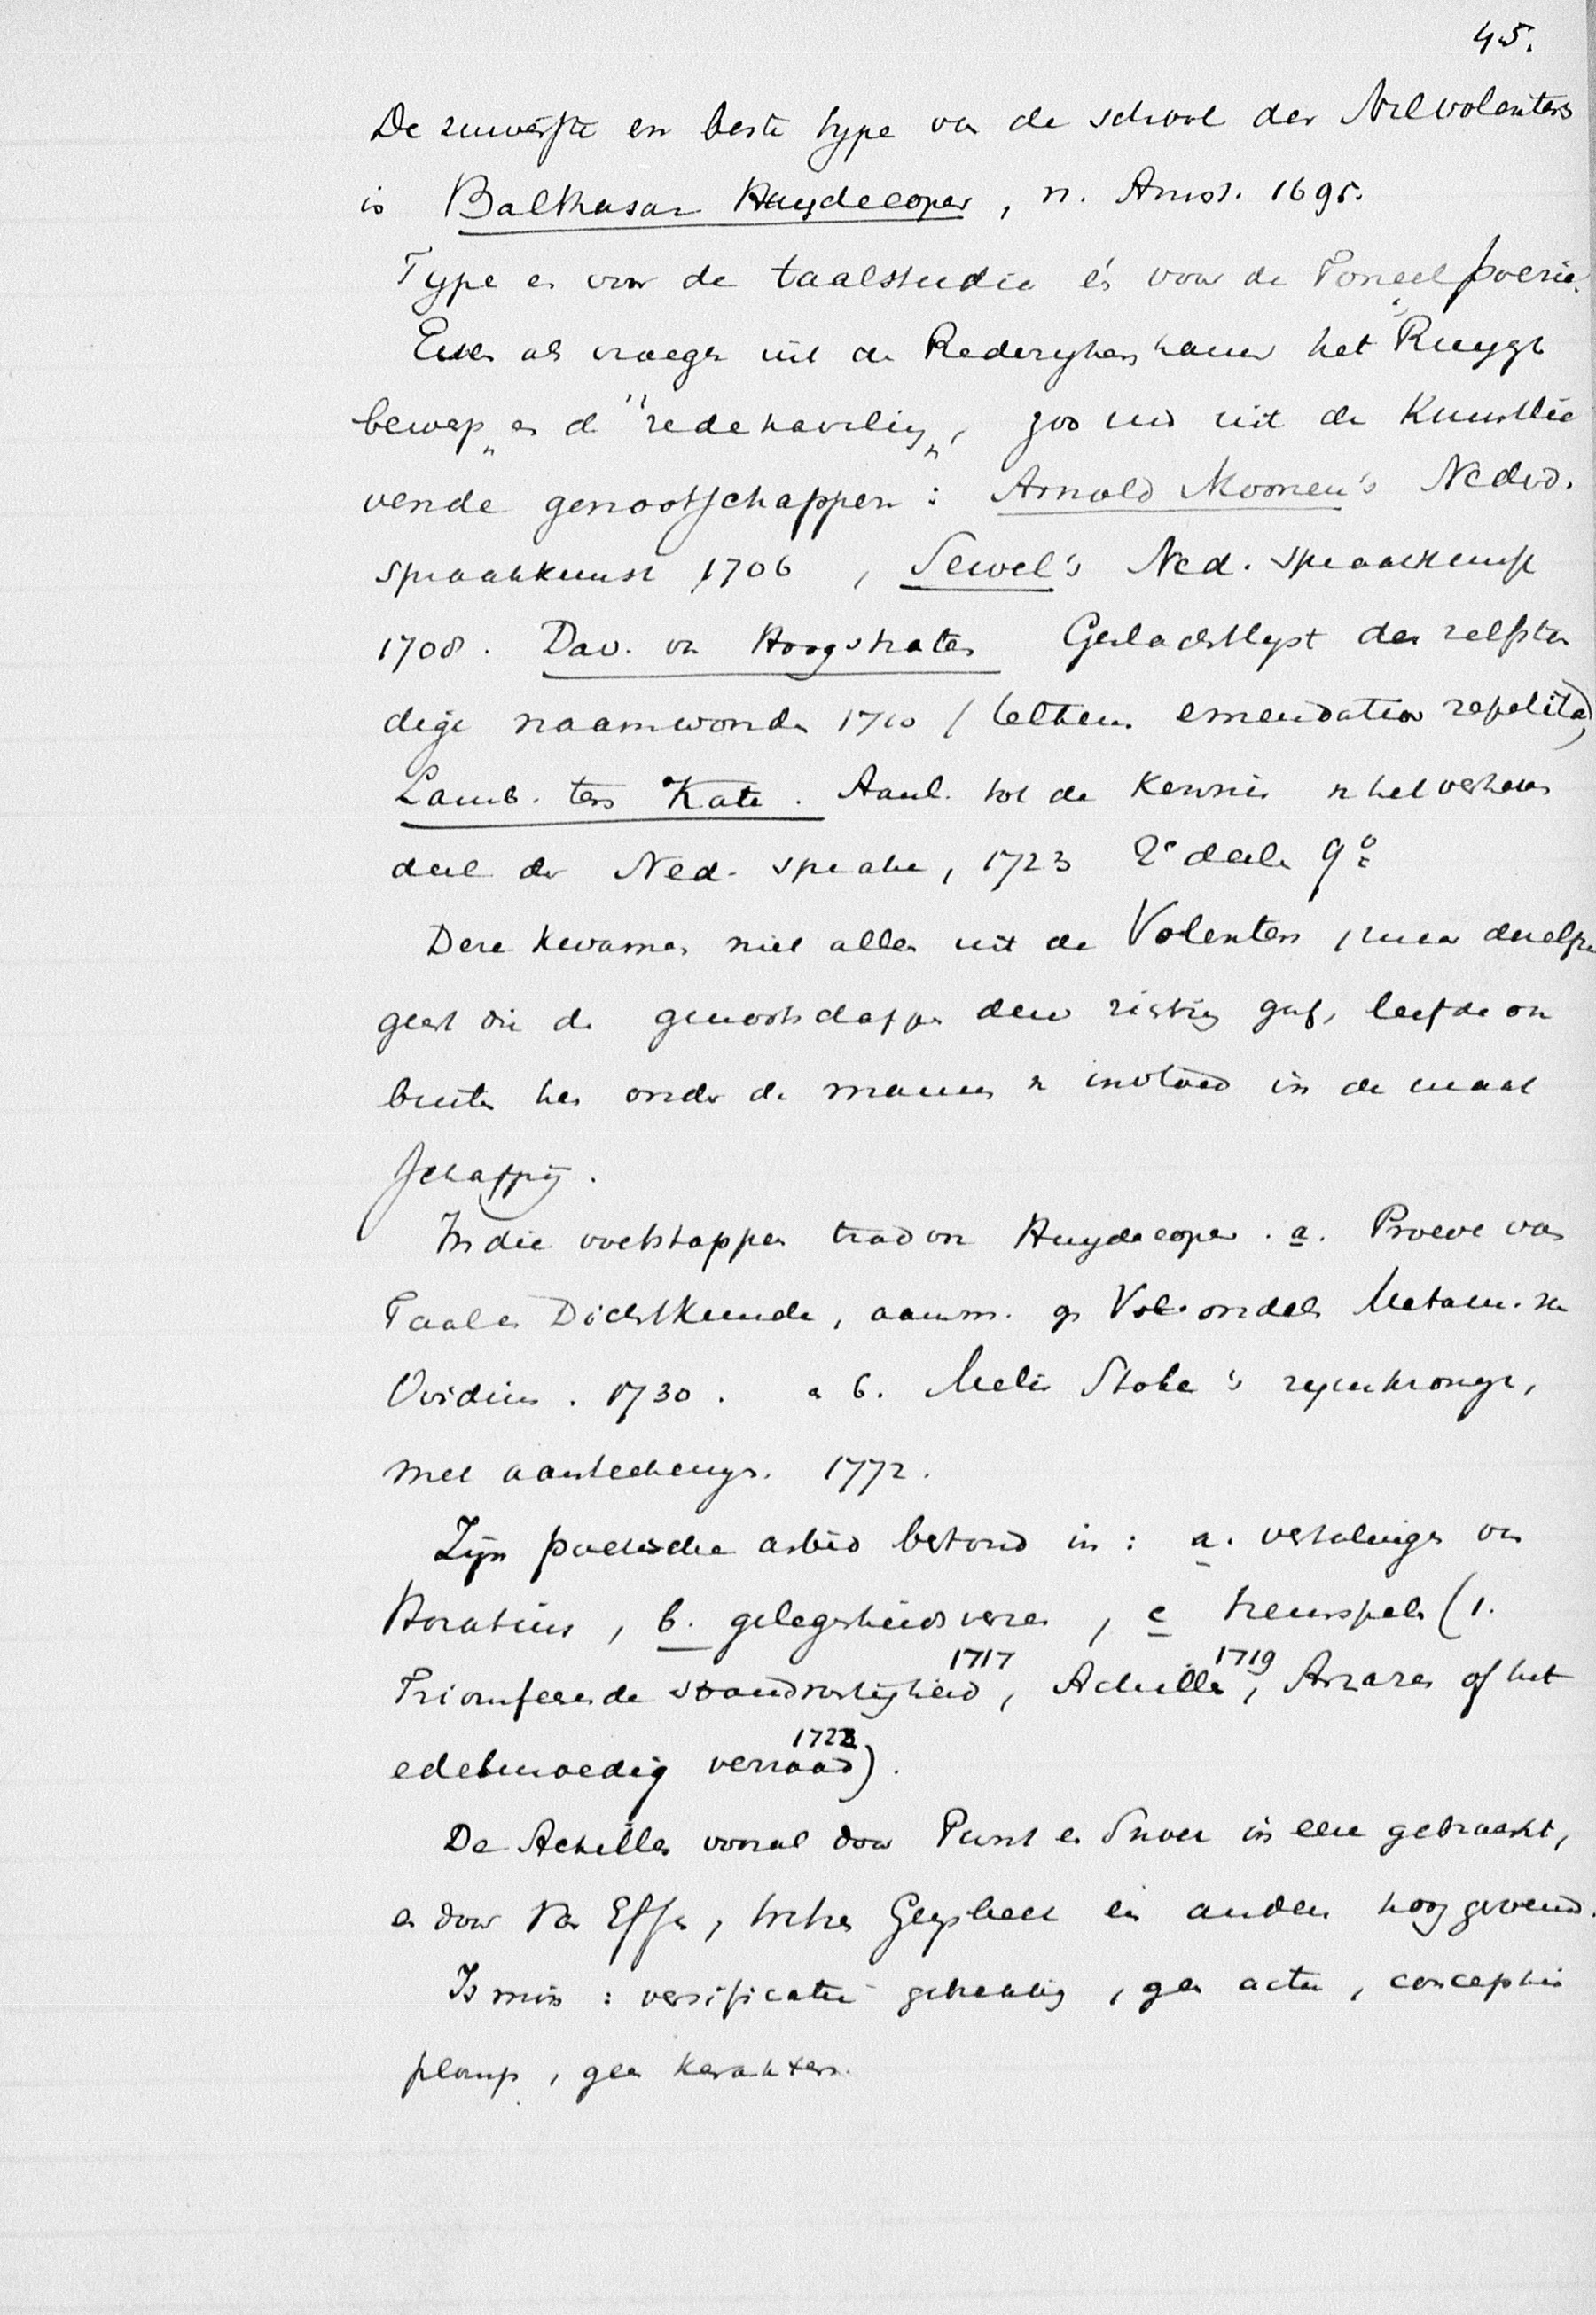 45.
De zuiverste en beste type van de school der Nil volentibs
is Balthasar Huydecoper, n. Amst. 1695.
Type en voor de taalstudie én voor de Toneelpoezie.
Even als vroeger uit de Rederykers kamer het "Ruygh
bewerp" en de "redekaveling", zoo nu uit de Kunstlie
vende genootschappen: Arnold Moonen's Nedrd.
spraakkunst 1706, Sewel's Ned. spraakkunst
1708. Dav. vn Hoogstraten Geslachtlyst der zelfstan
dige naamwoorden 1710 / emendatior repetita)
Lamb. ten Kate. Aanl. tot de Kennis v het verheven
deel der Ned. sprake, 1723 2e deele
Deze kwamen niet allen uit de Volenten, maar dezelfde
geest die de genootschappen deze richting gaf, leefde on
buiten hen onder de mannen v invloed in de maat
schappij.
In die voetstappen trad vn Huydecoper. a. Proeve van
Taal en Dichtkunde, aanm. op Vondels Metam. vn
Ovidius. 1730. b. Melis Stoke's rymkronyk,
met aanteekenyn. 1772.
Zijn poëtische arbeid bestond in: a. vertalingen van
Horatius, b. gelegenheidsverzen, c treurspelen (1.
Triomfeerende standvastigheid 1717, Achilles 1719, Arzares of het
edelmoedig verraad 1722).
De Achilles vooral door Punt en Snoek in eere gebracht,
en door Van Effen, Geysbeek en anderen hoog geroemd.
Is min: versificatie gebrekkig, geen actie, conceptie
plomp, geen karakters.